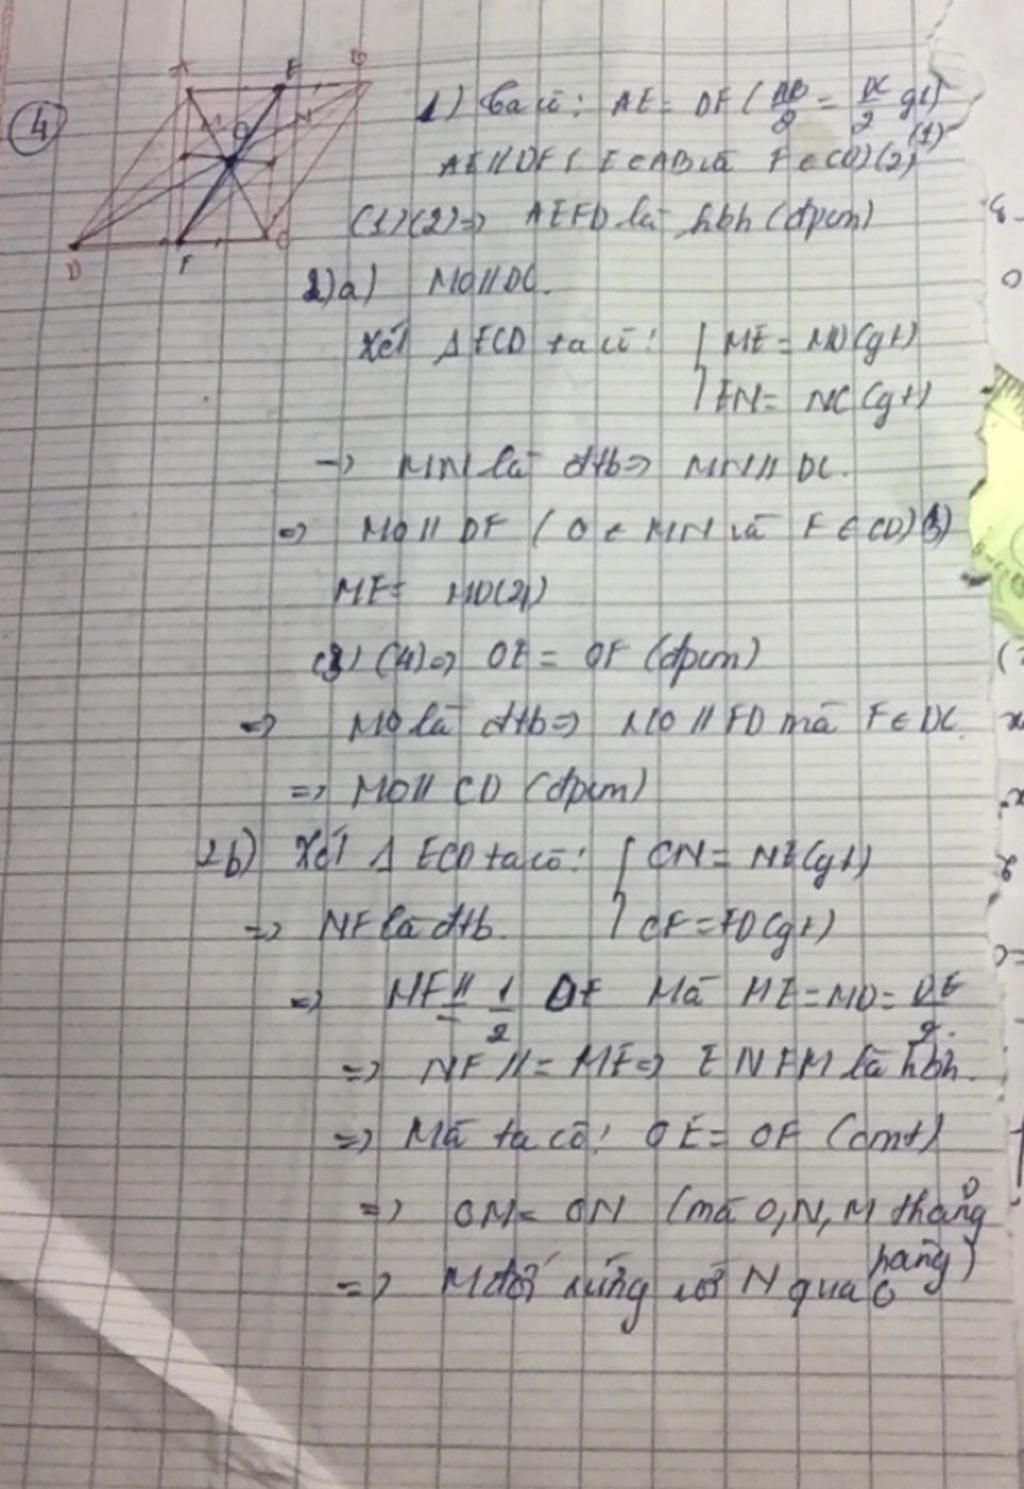 4
A E B
O
M N
D F C
1) Ta có: AE = DF (AB/2 = DC/2 gt) (1)
AE // DF (E ∈ AB và F ∈ CD) (2)
(1)(2) => AEFD là hbh (đpcm)
2)a) MO // DC.
Xét Δ ECD ta có: { ME = MD (gt)
EN = NC (gt)
-> MN là đtb => MN // DC.
=> MO // DF (O ∈ MN và F ∈ CD) (3)
ME = MD (4)
(3) (4) => OE = OF (đpcm)
=> MO là đtb => MO // FD mà F ∈ DC.
=> MO // CD (đpcm)
2b) Xét Δ ECD ta có: { CN = NE (gt)
=> NF là đtb. CF = FD (gt)
=> NF //= 1/2 DE Mà ME = MD = DE/2.
=> NF //= ME => ENFM là hbh.
=> Mà ta có: OE = OF (cmt)
=> OM = ON (mà O, N, M thẳng
hàng)
=> M đối xứng với N qua O